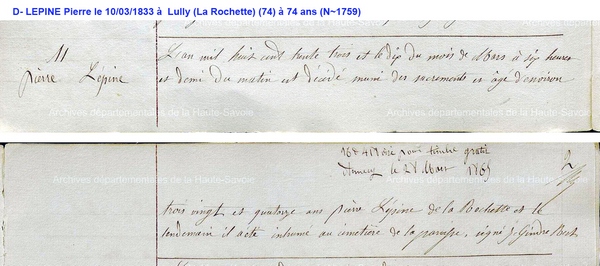 D- LEPINE Pierre le 10/03/1833 à Lully (La Rochette) (74) à 74 ans (N~1759)
11
pierre Lépine
L'an mil huit cent trente trois et le dix du mois de Mars à six heures
et demi du matin est décédé muni des sacrements et âgé d'environ
Archives départementales de la Haute-Savoie
Archives départementales de la Haute-Savoie
pour timbre gratis
Annecy le 28 Mars 1865
2
trois vingt et quatorze ans pierre Lépine de la Rochette et le
lendemain il a été inhumé au cimetière de la paroisse, signé J. Gindre Rect